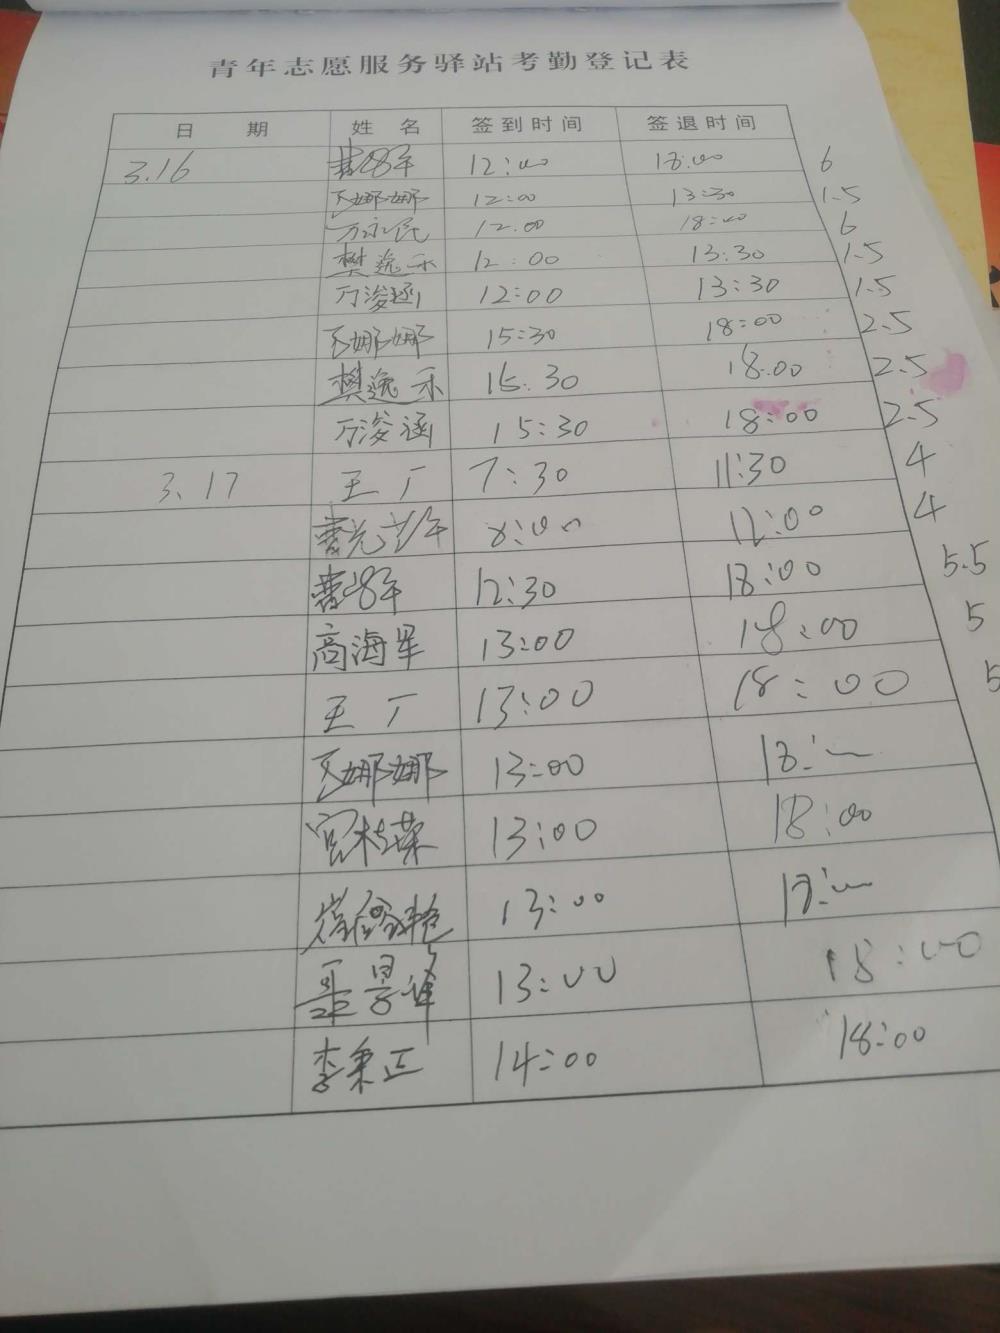 青年志愿服务驿站考勤登记表
日 期 姓 名 签到时间 签退时间
3.16 12:00 18:00 6
娜娜 12:00 13:30 1.5
万永民 12:00 18:00 6
樊逸禾 12:00 13:30 1.5
万浚涵 12:00 13:30 1.5
娜娜 15:30 18:00 2.5
樊逸禾 15:30 18:00 2.5
万浚涵 15:30 18:00 2.5
3.17 王丁 7:30 11:30 4
8:00 12:00 4
12:30 18:00 5.5
高海军 13:00 18:00 5
王丁 13:00 18:00 5
娜娜 13:00 18:00
宫桂荣 13:00 18:00
13:00 18:00
13:00 18:00
李秉正 14:00 18:00